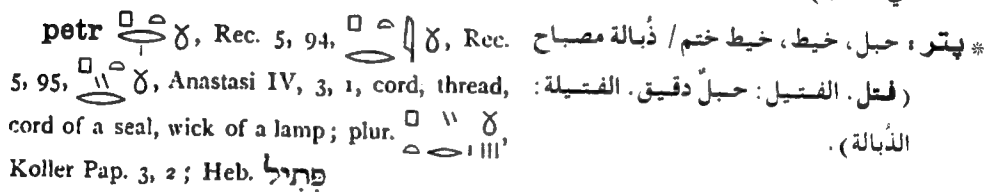 petr , Rec. 5, 94, , Rec.
5, 95, , Anastasi IV, 3, 1, cord, thread,
cord of a seal, wick of a lamp; plur. ,
Koller Pap. 3, 2; Heb. פְּתִיל
* پتر: حبل، خيط، خيط ختم / ذُبالة مصباح
(فتل. الفتيل: حبلٌ دقيق. الفتيلة:
الذُبالة).